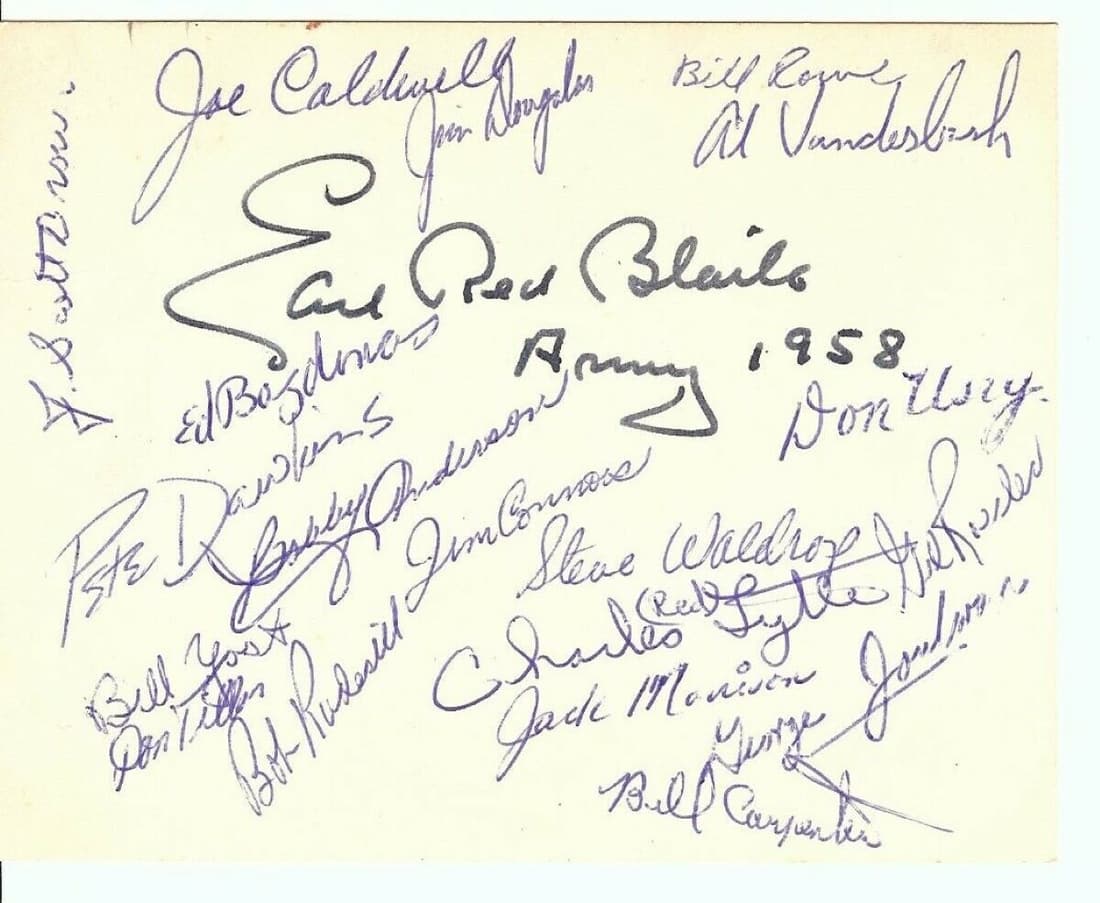 Joe Caldwell
Jim Douglas
Bill Rowe
Al Vanderbush
Earl Red Blaik
Army 1958
Ed Bagdonas
Don Usry
Pete Dawkins
Bobby Anderson
Jim Connors
Steve Waldrop
Gil Roesler
Charles (Red) Lytle
Bill Yost
Don Tillar
Bob Rudesill
Jack Morrison
George Joulwan
Bill Carpenter